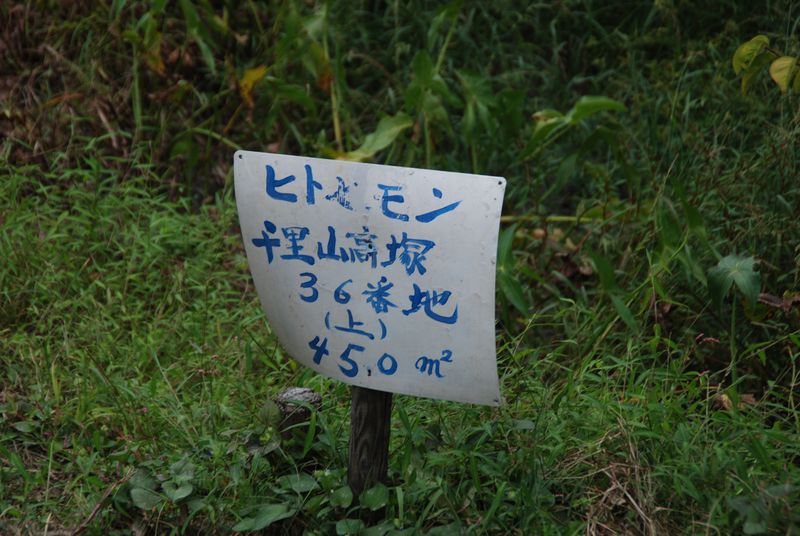 ヒトメモン
千里山高塚
36番地
(上)
45.0m²